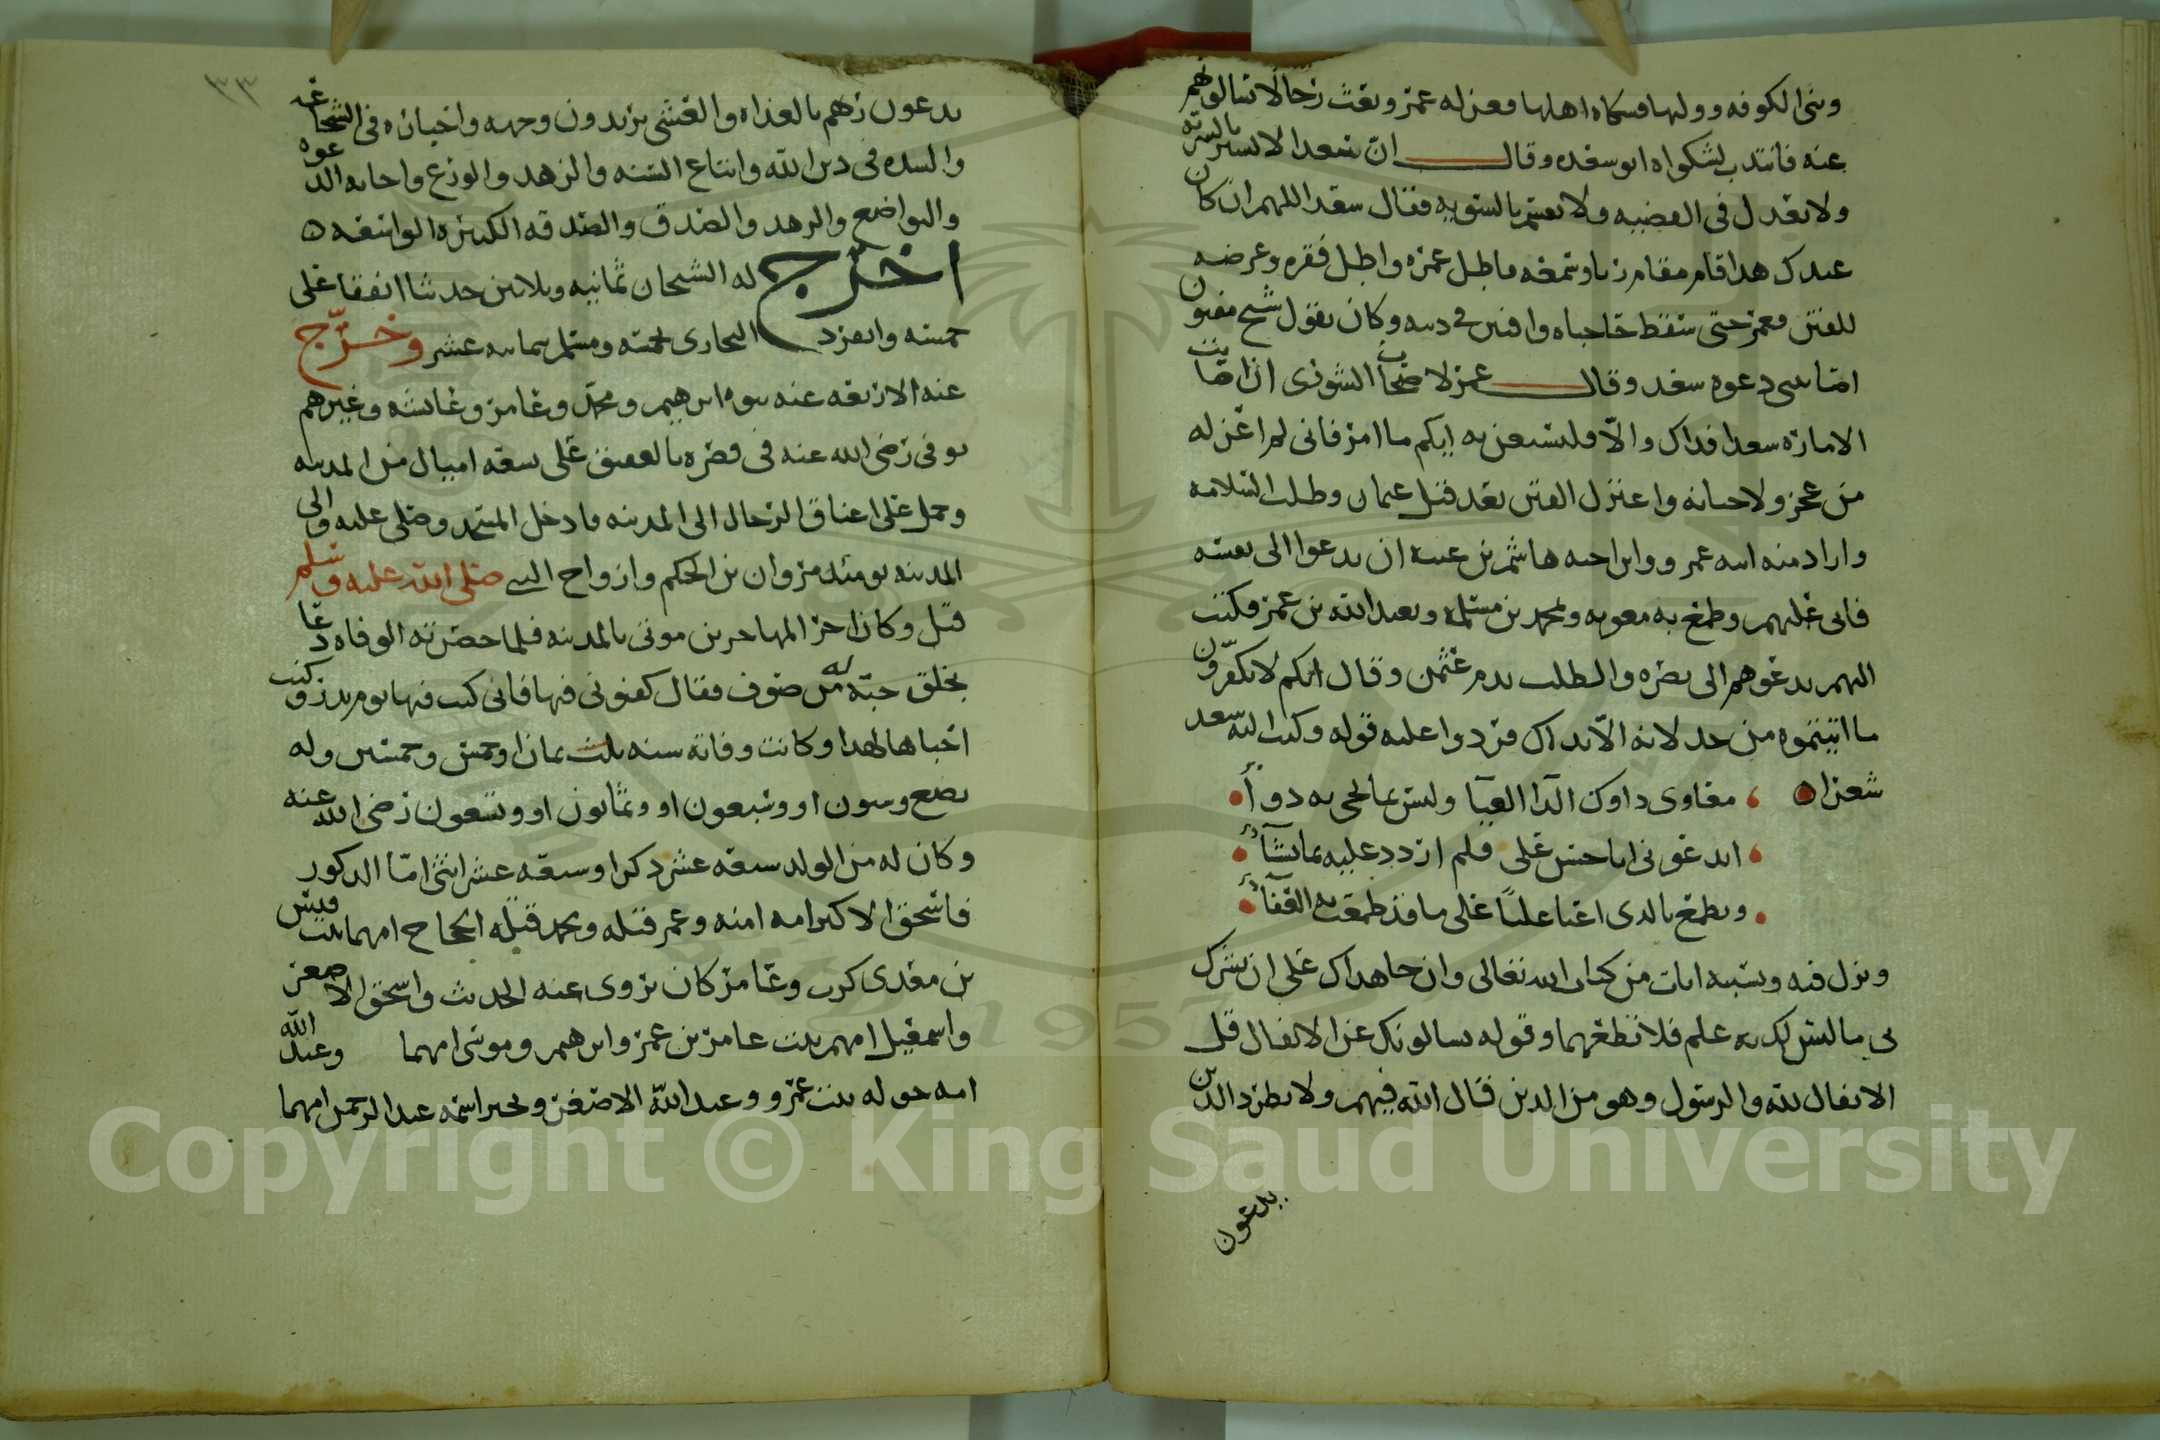 وبنى الكوفه ووليها فشكاه اهلها فعزله عمر وبعث رجالا يسالونهم
عنه فانتدب لشكواه ابو سعده وقال ان سعدا لا يسير بالسريه
ولا يعدل فى القضيه ولا يقسم بالسويه فقال سعد اللهم ان كان
عبدك هذا قام مقام ريا وسمعه فاطل عمره واطل فقره وعرضه
للفتن فعمر حتى سقط حاجباه وافتن فى دينه وكان يقول شيخ مفتون
اصابتنى دعوه سعد وقال عمر لاصحاب الشورى اذا اصابت
الاماره سعدا فذاك والا فليستعن به ايكم ما امر فانى لم اعزله
من عجز ولا خيانه واعتزل الفتن بعد قتل عثمان وطلب السلامه
واراد منه ابنه عمر وابن اخيه هاشم بن عتبه ان يدعوا الى نفسه
فابى عليهم وطمع به معويه ومحمد بن مسلمه وبعبد الله بن عمر فكتب
اليهم يدعوهم الى نصره والطلب بدم عثمن وقال انكم لا تكفرون
ما اتيتموه من خذلانه الا بذاك فردوا عليه قوله وكتب اليه سعد
شعرا معاوى داوك الدآ العيآ وليس بما تجى به دوآ
ايدعونى ابا حسن على فلم اردد عليه بما يشآ
ويطمع بالذى اعيا عليا على ما قد طمعت به العفآ
ونزل فيه وبسببه ايات من كتاب الله تعالى وان جاهداك على ان تشرك
بى ما ليس لك به علم فلا تطعهما وقوله يسالونك عن الانفال قل
الانفال لله والرسول وهو من الذين قال الله فيهم ولا تطرد الذين
يدعون
٣٣
يدعون ربهم بالغداه والعشى يريدون وجهه واخباره فى الشجاعه
والشده فى دين الله واتباع السنه والزهد والورع واجابه الدعوه
والتواضع والزهد والصدق والصدقه الكثيره الواسعه
اخرج له الشيخان ثمانيه وثلاثين حديثا اتفقا على
خمسه وانفرد البخارى بخمسه ومسلم بثمانيه عشر وخرج
عنه الاربعه عنه بنوه ابرهيم ومحمد وعامر وعائشه وغيرهم
توفى رضى الله عنه فى قصره بالعقيق على سبعه اميال من المدينه
وحمل على اعناق الرجال الى المدينه فادخل المسجد وصلى عليه والى
المدينه يومئذ مروان بن الحكم وازواج النبى صلى الله عليه وسلم
قيل وكان اخر المهاجرين موتى بالمدينه فلما حضرته الوفاه دعا
بخلق جبه له من صوف فقال كفنونى فيها فانى كنت فيها يوم بدر وكنت
اخباها لهذا وكانت وفاته سنه ثلث ثمان او خمس وخمسين وله
بضع وستون او وسبعون او وثمانون او وتسعون رضى الله عنه
وكان له من الولد سبعه عشر ذكرا وسبعه عشر انثى اما الذكور
فاسحق الاكبر امه امنه وعمر قتله ومحمد قتله الحجاج امهما بنت قيس
بن معدى كرب وعامر كان يروى عنه الحديث واسحق الاصغر
واسمعيل امهم بنت عامر بن عمر وابرهيم وموسى امهما وعبد الله
امه خوله بنت عمرو وعبد الله الاصغر وبجير اسمه عبد الرحمن امهما
Copyright © King Saud University
1957